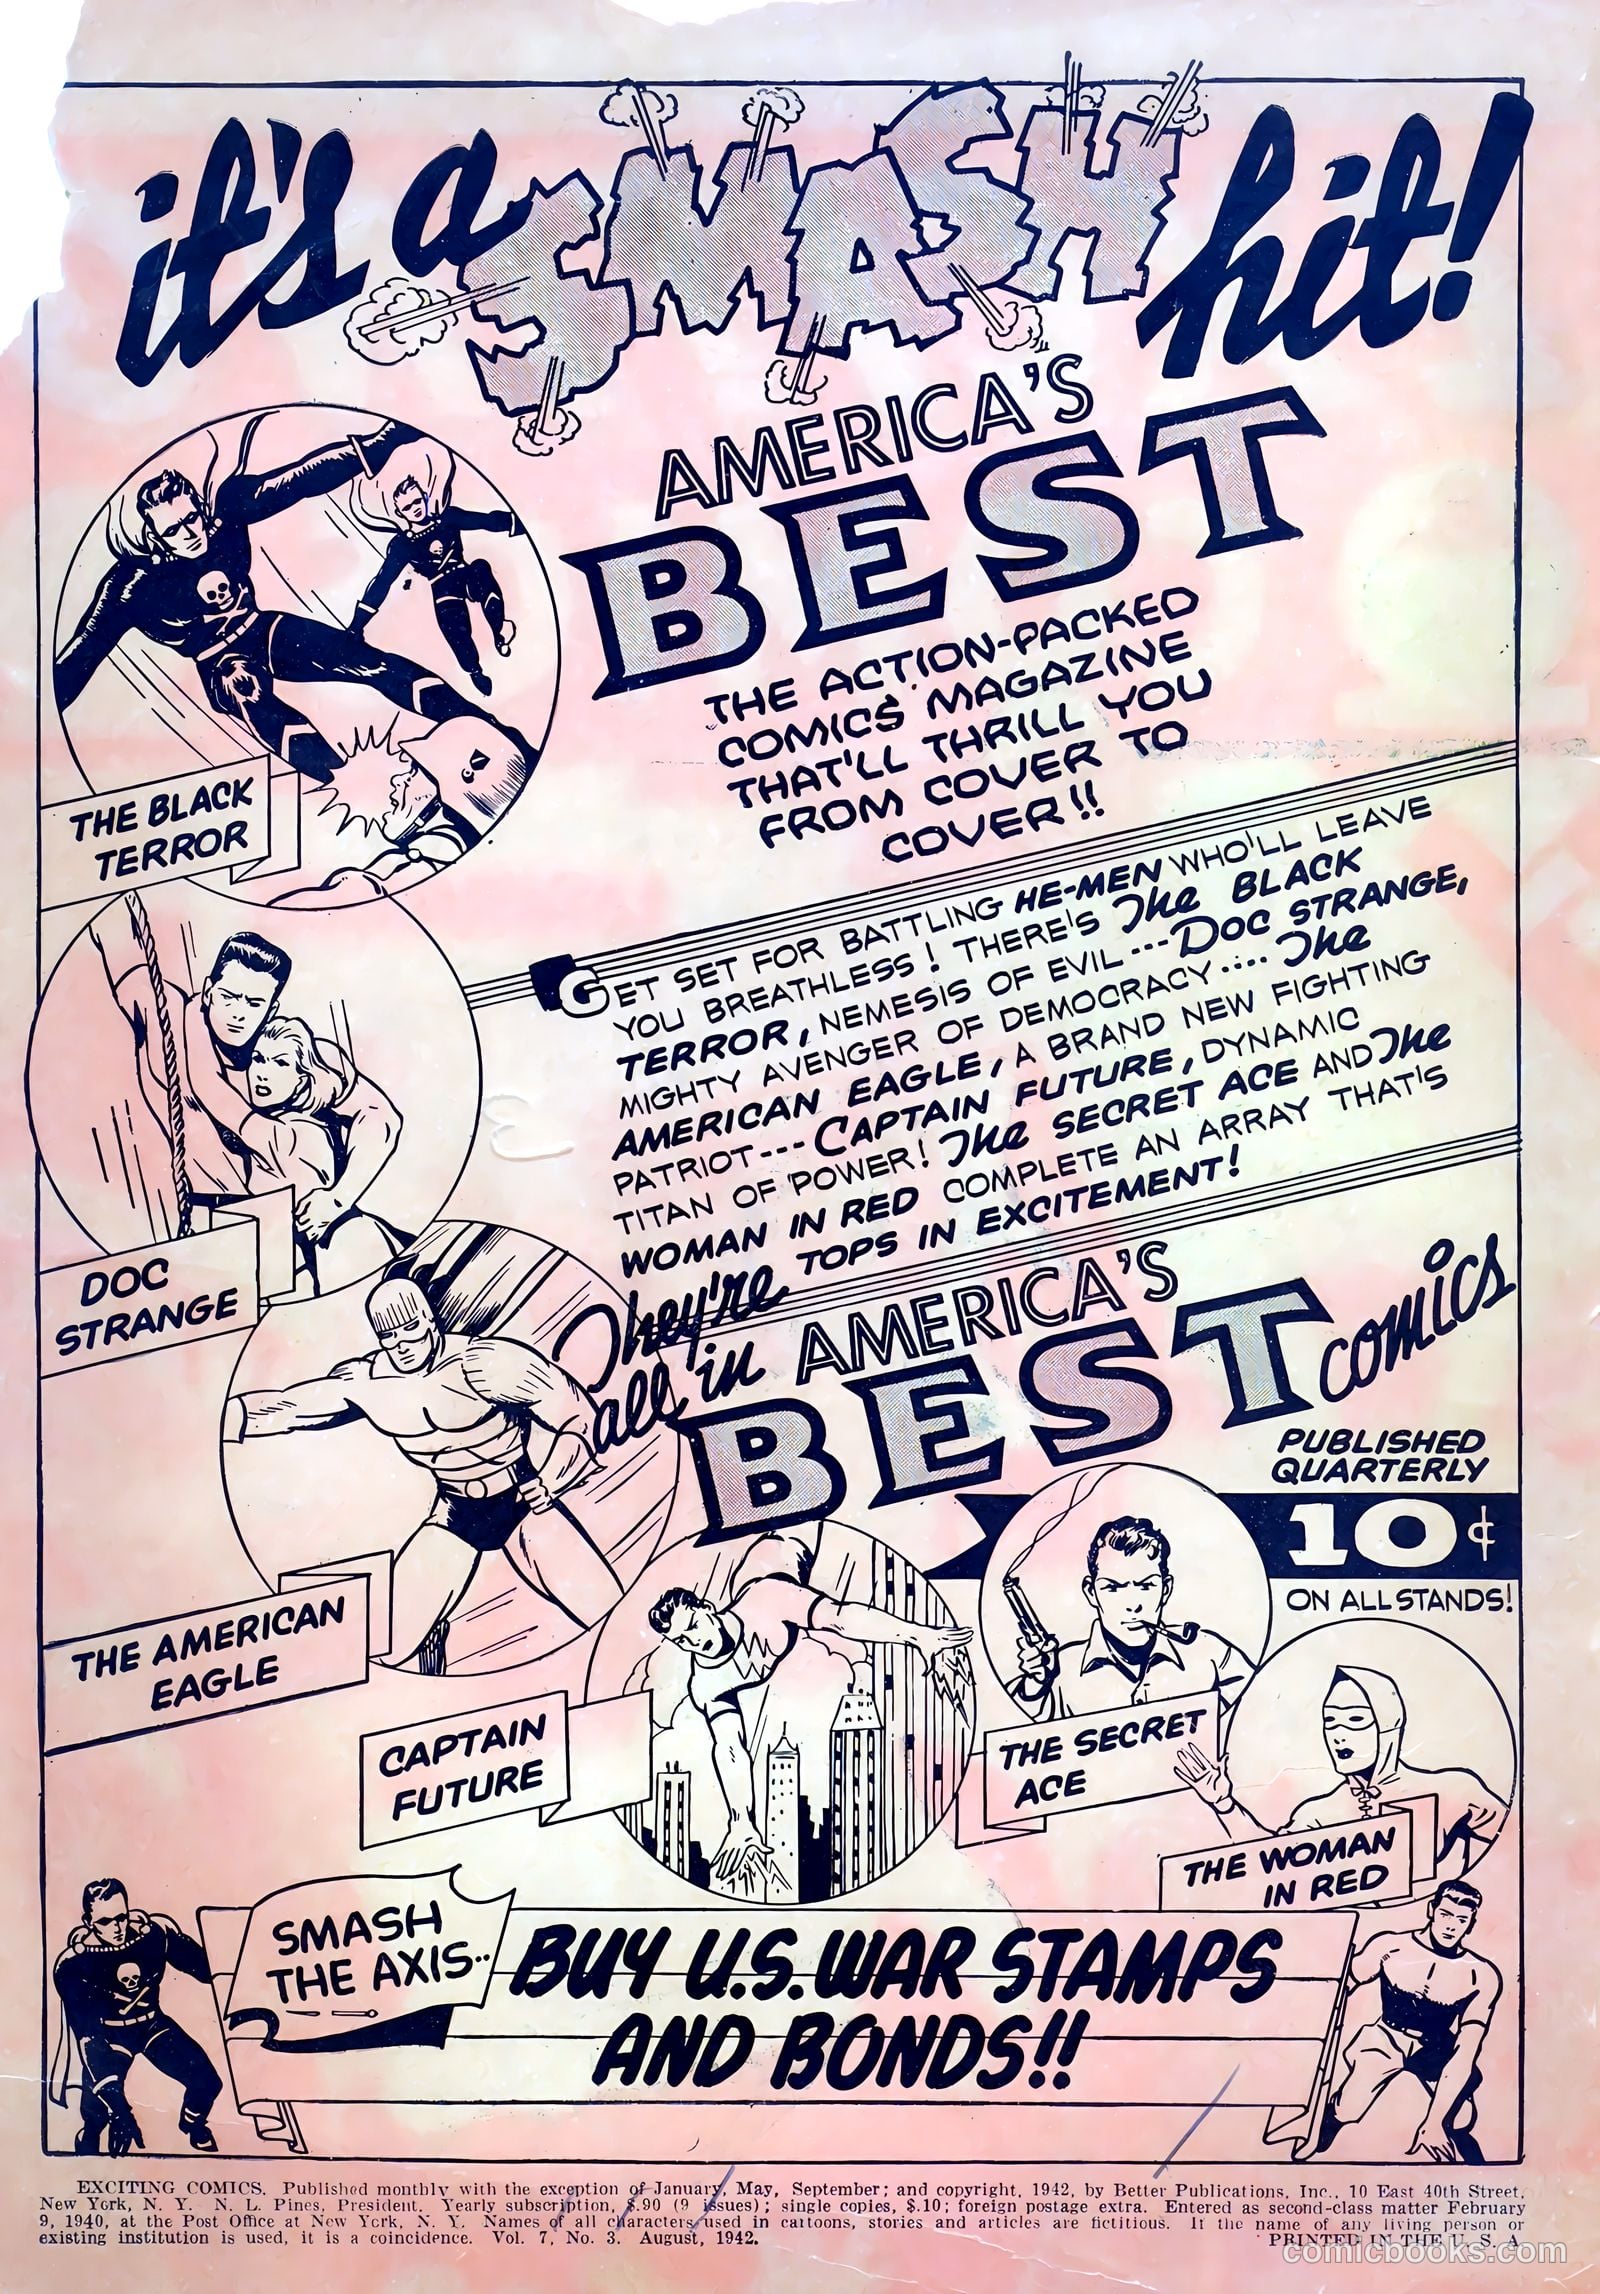 it's a SMASH hit!
AMERICA'S
BEST
THE ACTION-PACKED
COMICS MAGAZINE
THAT'LL THRILL YOU
FROM COVER TO
COVER!!
THE BLACK
TERROR
GET SET FOR BATTLING HE-MEN WHO'LL LEAVE
YOU BREATHLESS! THERE'S The BLACK
TERROR, NEMESIS OF EVIL---DOC STRANGE,
MIGHTY AVENGER OF DEMOCRACY.... The
AMERICAN EAGLE, A BRAND NEW FIGHTING
PATRIOT---CAPTAIN FUTURE, DYNAMIC
TITAN OF POWER! The SECRET ACE AND The
WOMAN IN RED COMPLETE AN ARRAY THAT'S
TOPS IN EXCITEMENT!
DOC
STRANGE
They're
all in AMERICA'S
BEST comics
PUBLISHED
QUARTERLY
10¢
ON ALL STANDS!
THE AMERICAN
EAGLE
CAPTAIN
FUTURE
THE SECRET
ACE
THE WOMAN
IN RED
SMASH
THE AXIS..
BUY U.S. WAR STAMPS
AND BONDS!!
EXCITING COMICS. Published monthly with the exception of January, May, September; and copyright, 1942, by Better Publications, Inc., 10 East 40th Street,
New York, N. Y. N. L. Pines, President. Yearly subscription, $.90 (9 issues); single copies, $.10; foreign postage extra. Entered as second-class matter February
9, 1940, at the Post Office at New York, N. Y. Names of all characters used in cartoons, stories and articles are fictitious. If the name of any living person or
existing institution is used, it is a coincidence. Vol. 7, No. 3. August, 1942. PRINTED IN THE U. S. A
comicbooks.com